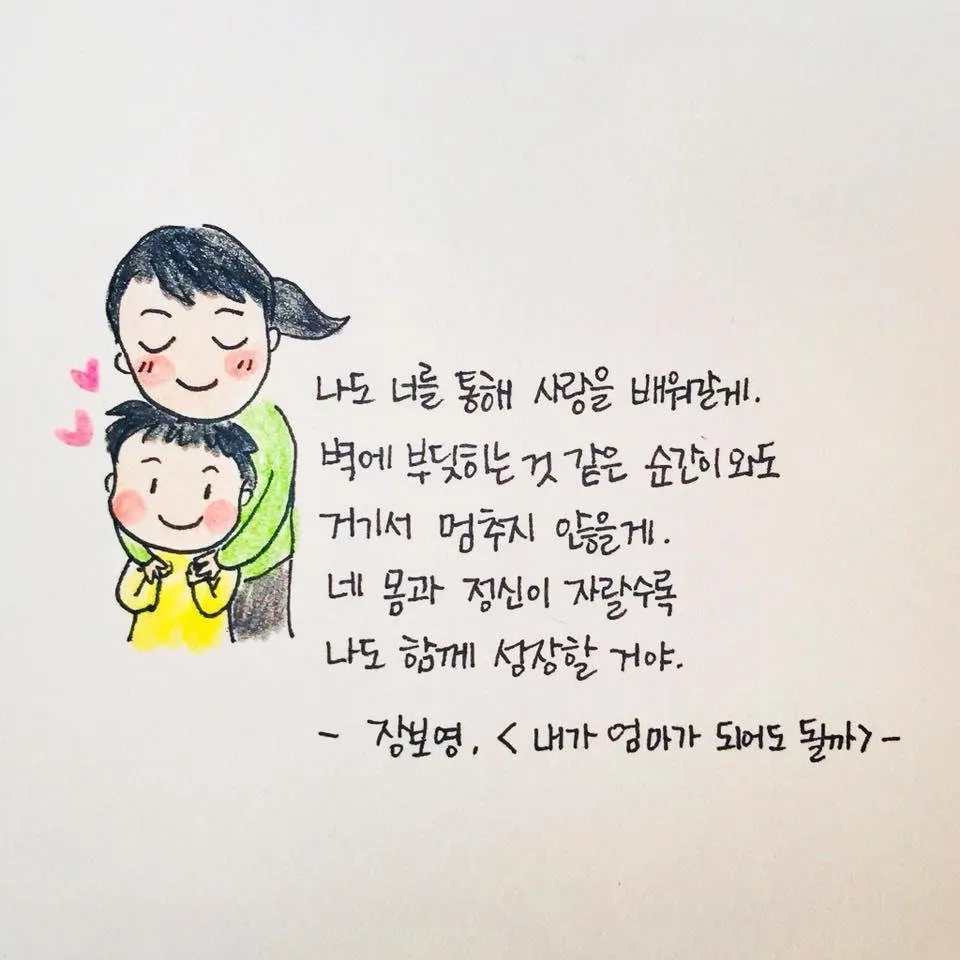 나도 너를 통해 사랑을 배워갈게.
벽에 부딪히는 것 같은 순간이 와도
거기서 멈추지 않을게.
네 몸과 정신이 자랄수록
나도 함께 성장할 거야.
- 장보영, <내가 엄마가 되어도 될까> -